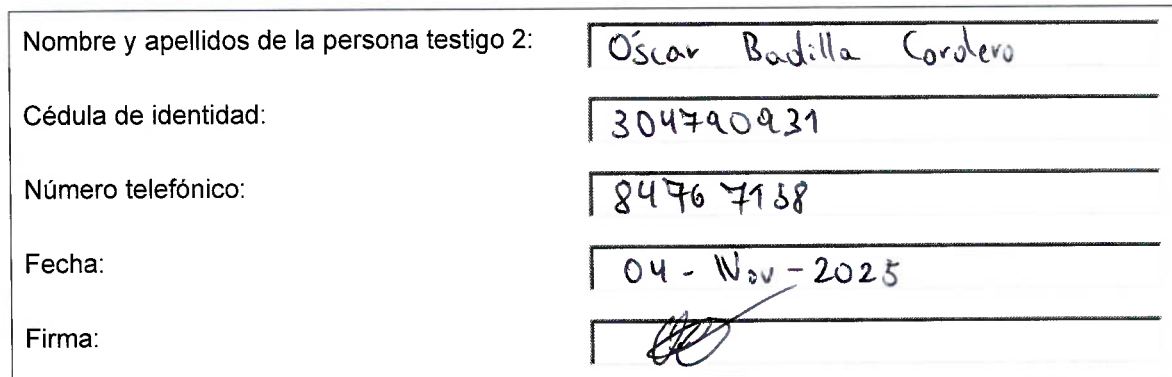 Nombre y apellidos de la persona testigo 2: Óscar Badilla Cordero
Cédula de identidad: 304790931
Número telefónico: 8476 7158
Fecha: 04 - Nov - 2025
Firma: